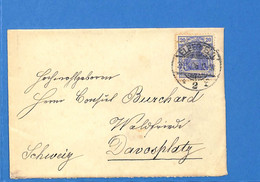 Hochwohlgeboren
Herrn Consul Burchard
Waldfriede
Davosplatz
Schweiz